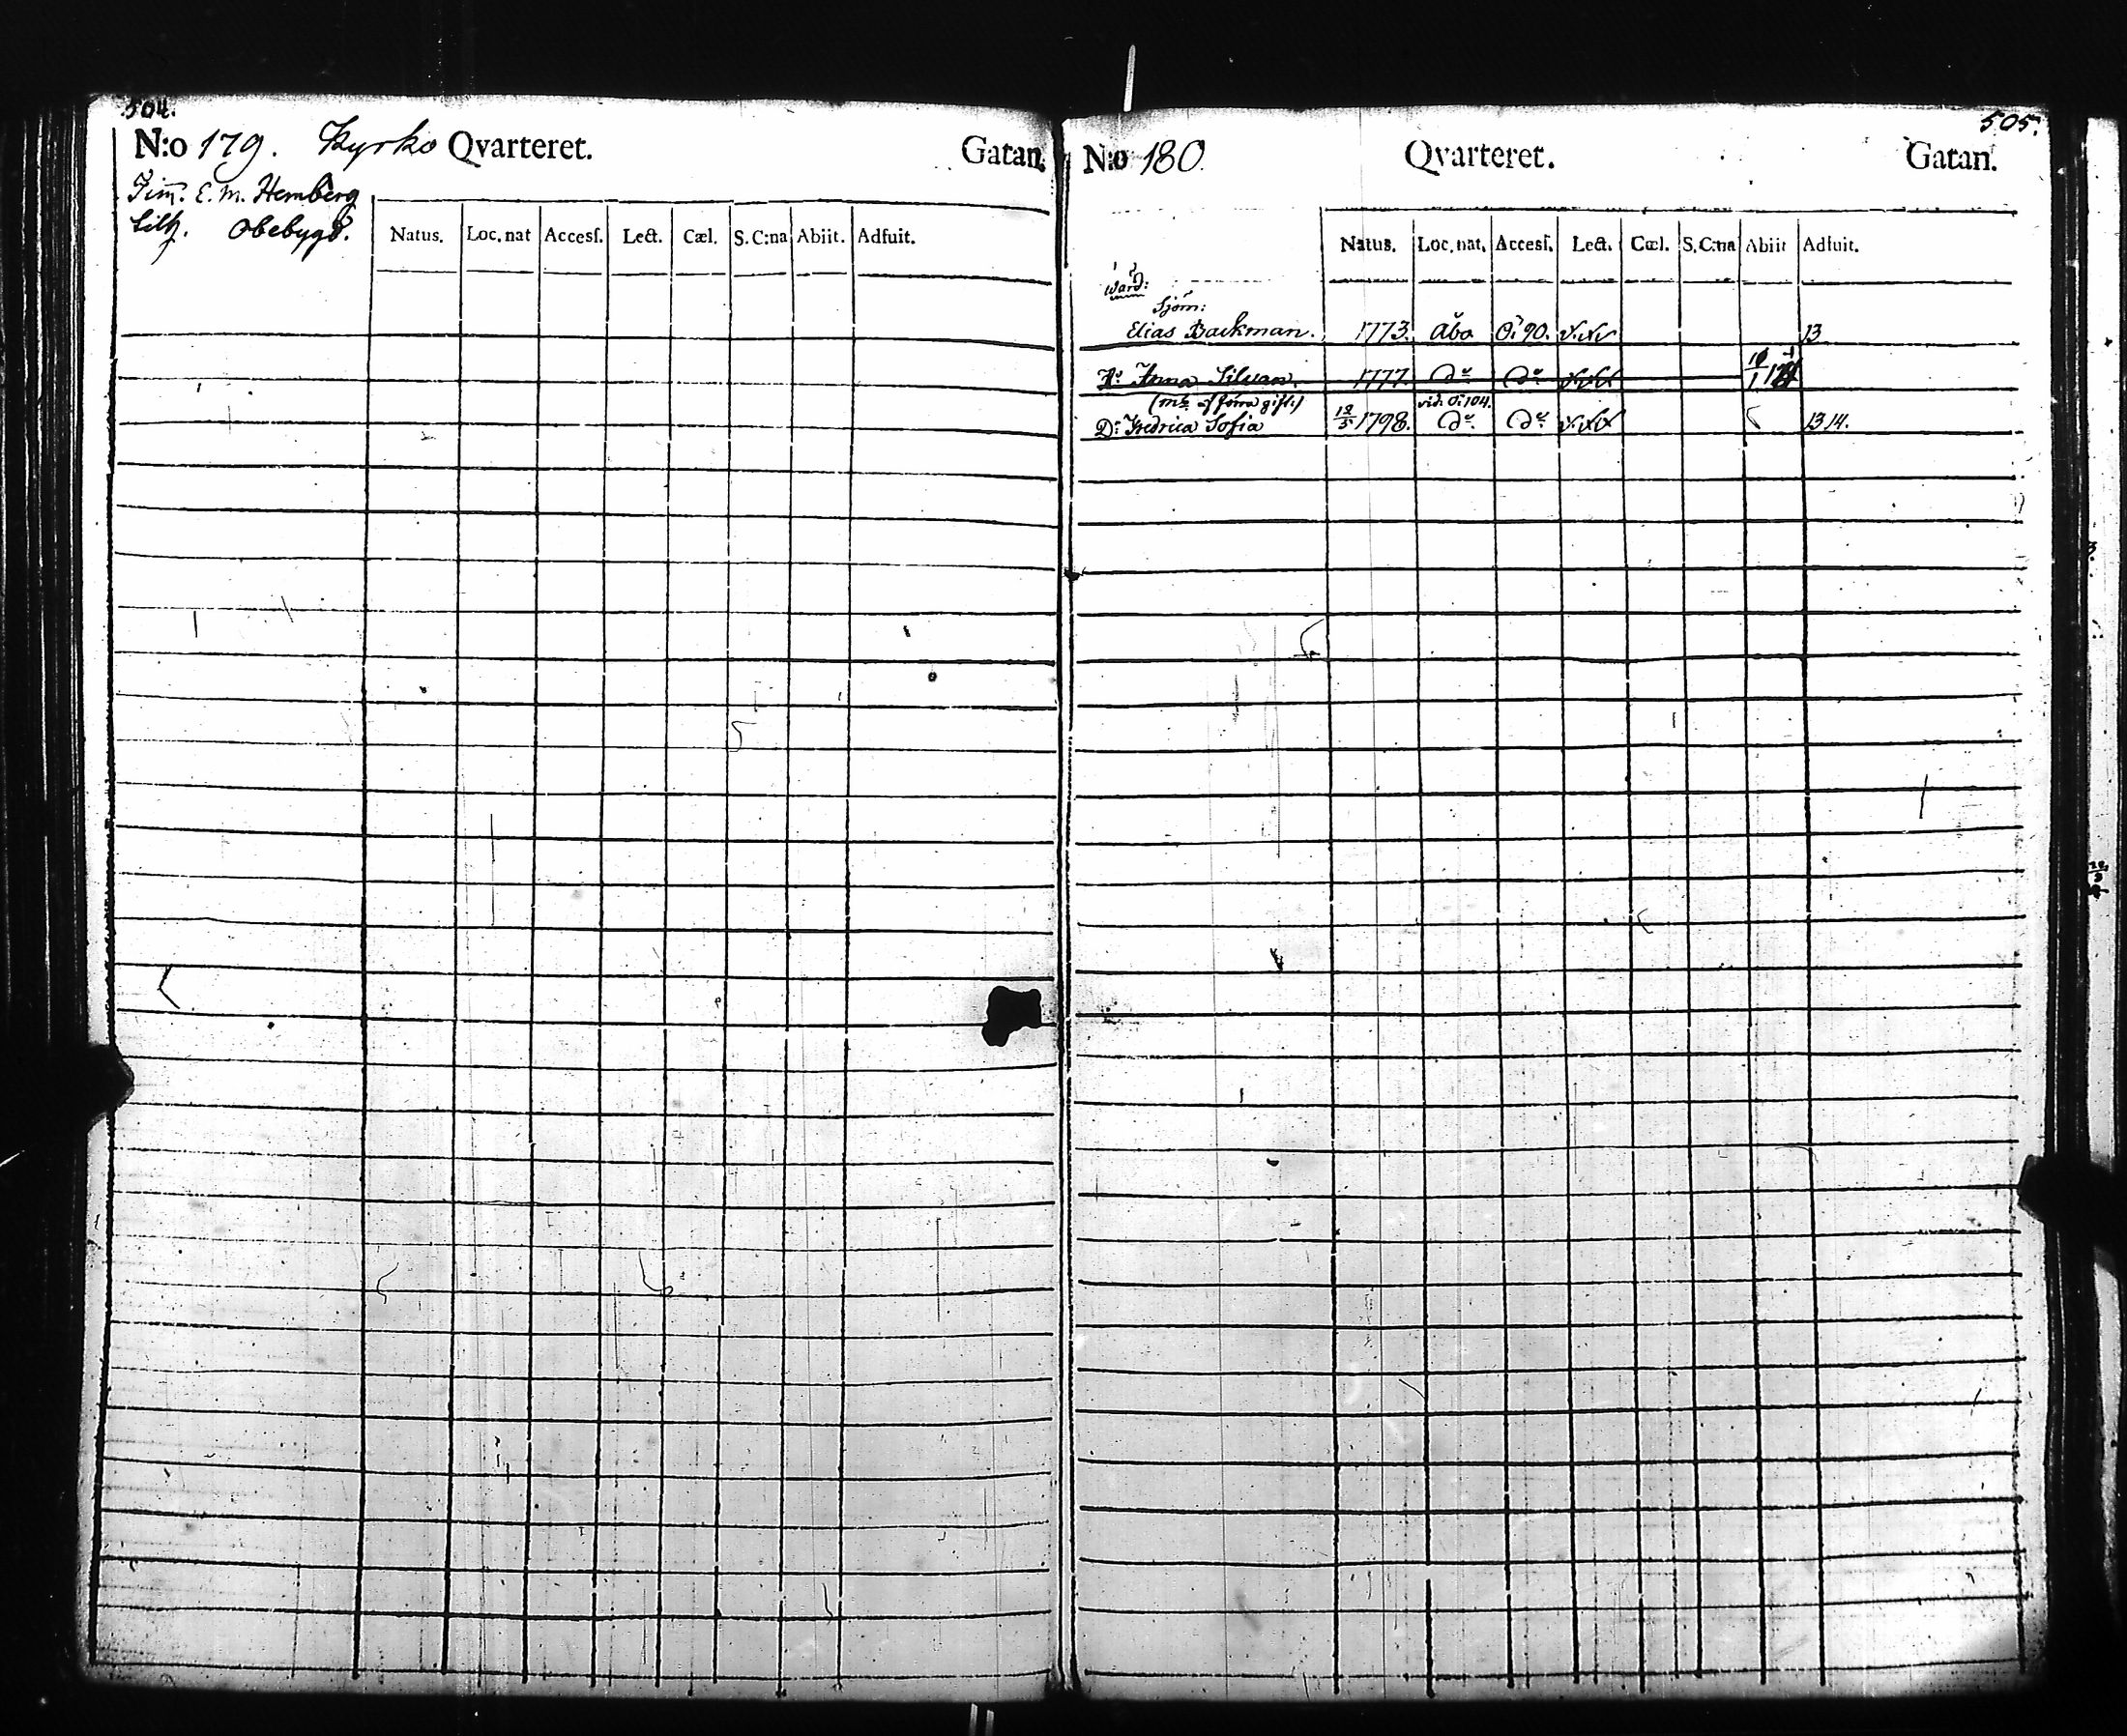 504.
N:o 179. Kyrko Qvarteret. Gatan.
Tim̄. E. M. Hemberg
Obebygd.
Natus. Loc. nat Accesſ. Lect. Cæl. S. C:na Abiit. Adfuit.
505.
N:o 180. Qvarteret. Gatan.
Natus. Loc. nat. Accesſ. Lect. Cæl. S. C:na Abiit Adfuit.
Wärd:
Sjöm:
Elias Backman. 1773. Åbo 90. 13
Hu Anna Silvan. 1777. do do
(med förra gift:) vid. 104.
Dr Fredrica Sofia 1798. do do 13 14.